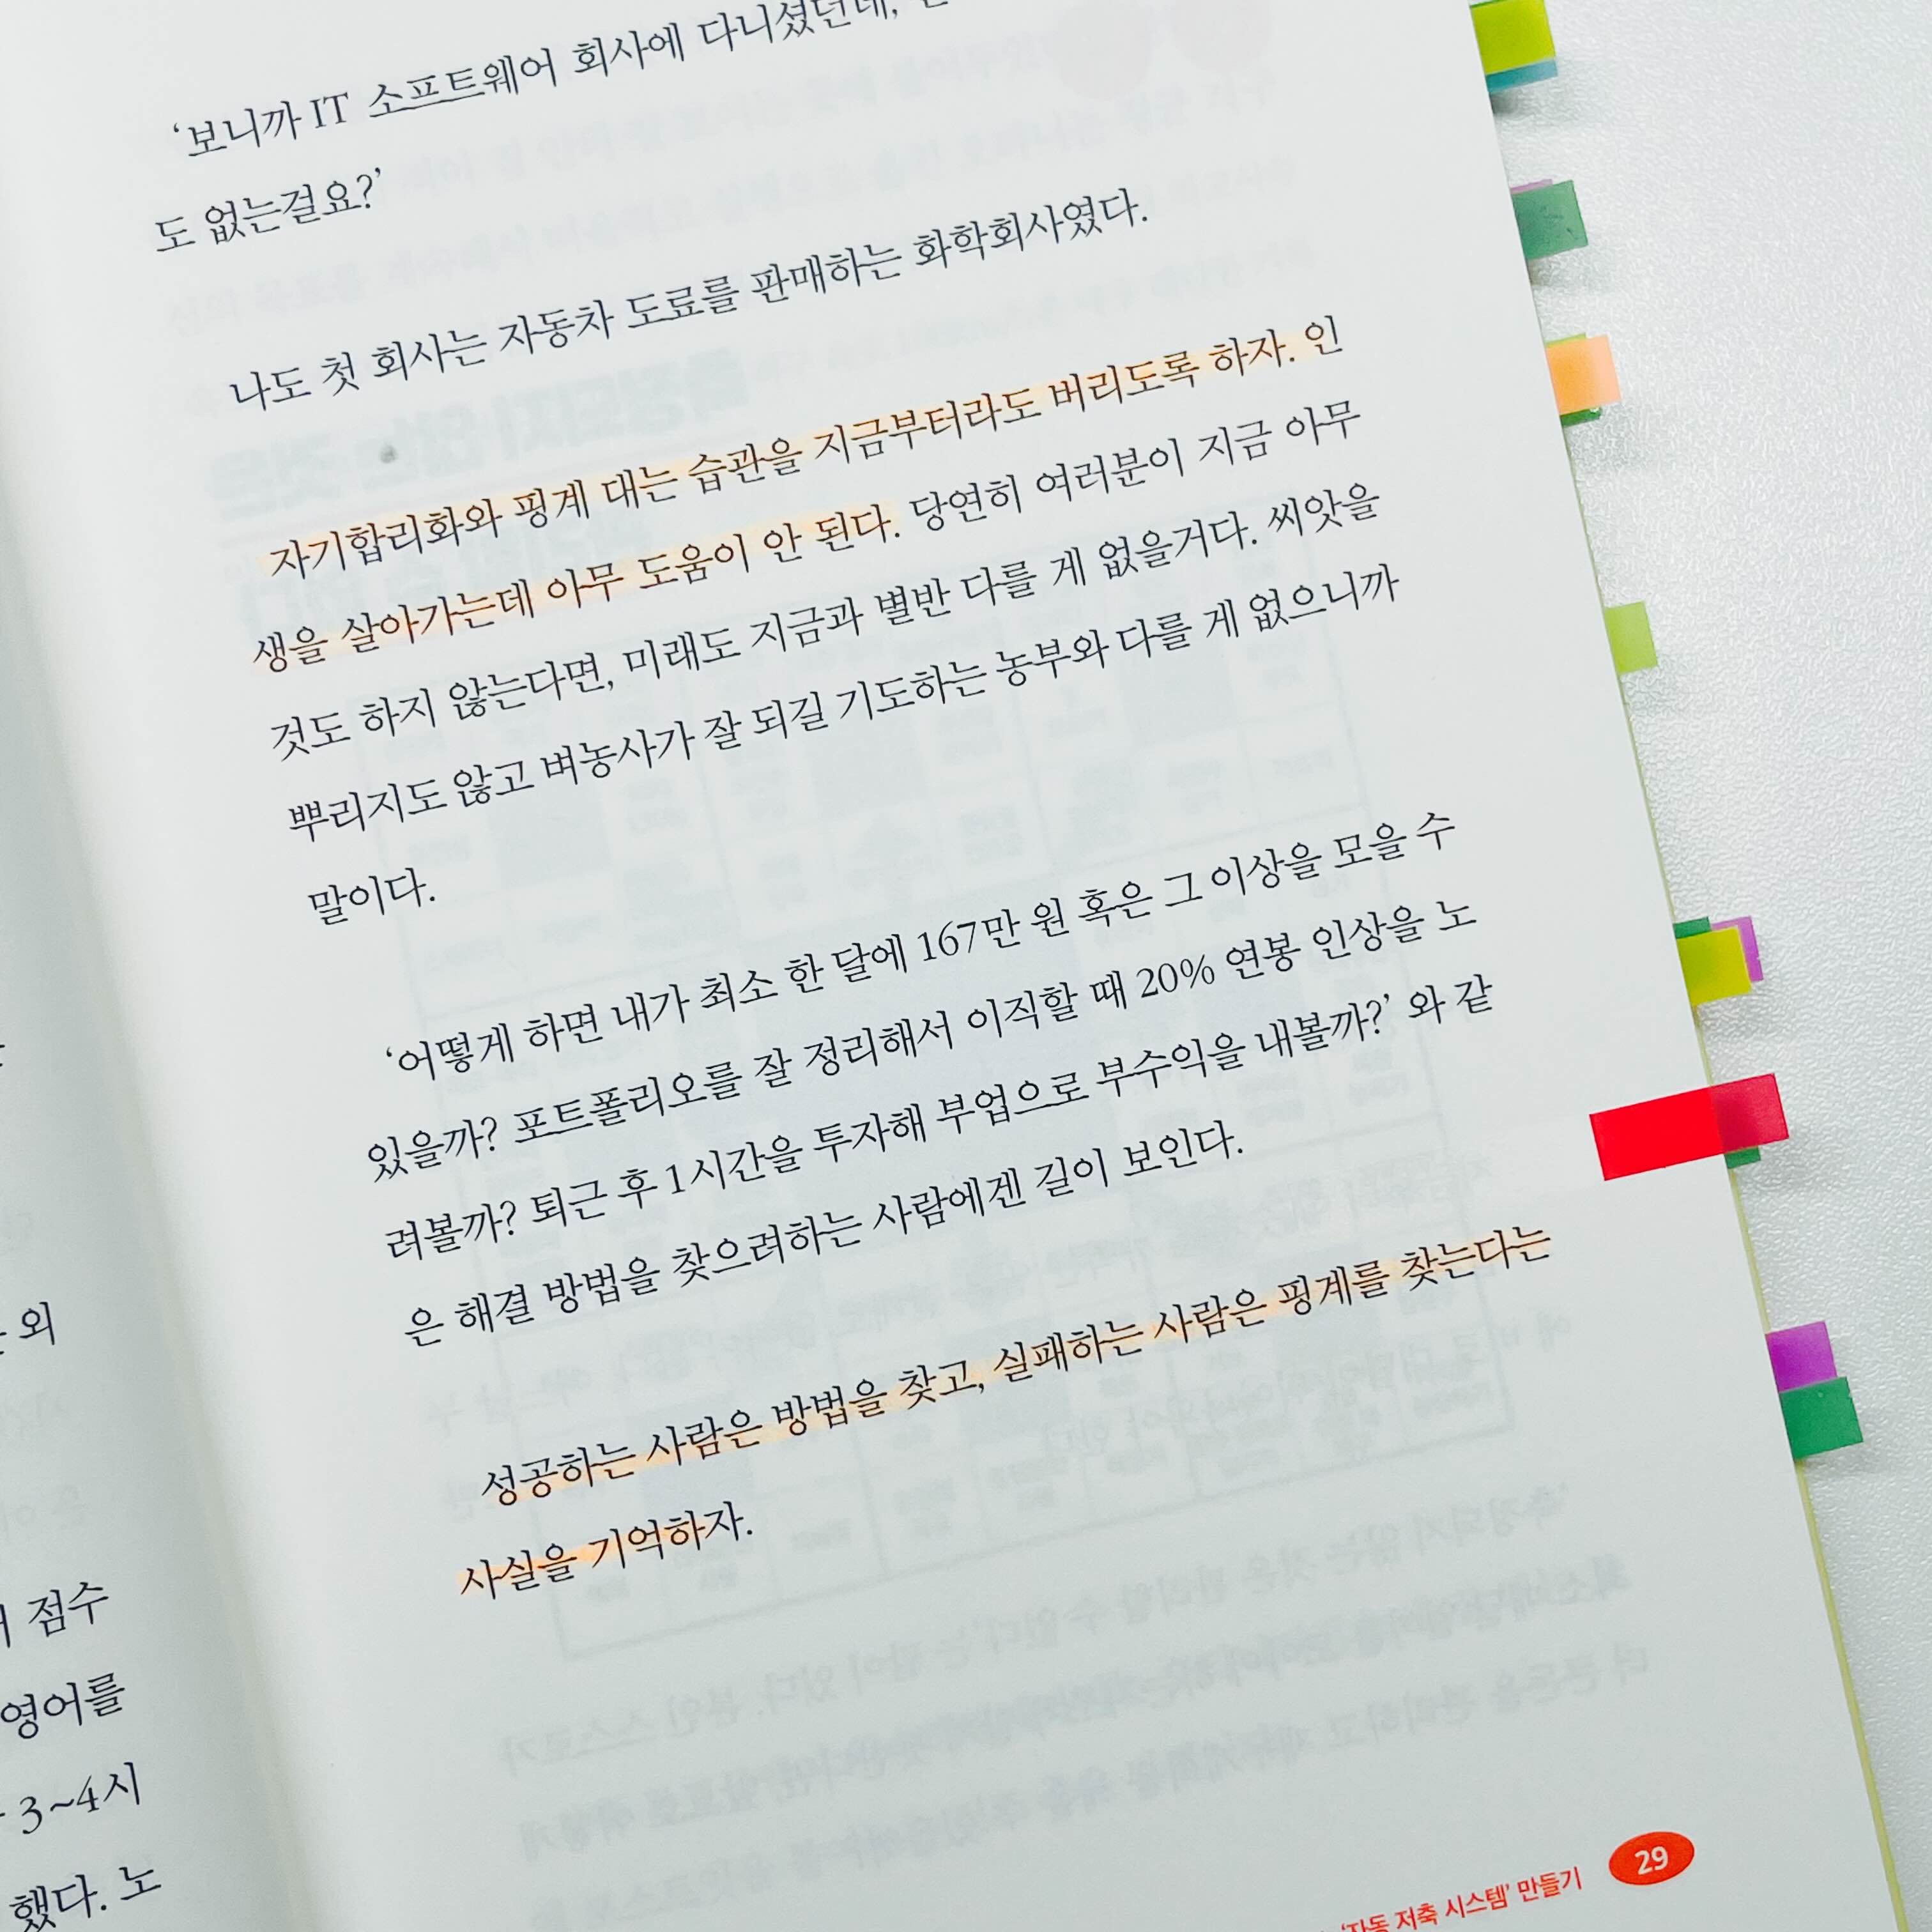 ‘보니까 IT 소프트웨어 회사에 다니셨던데,
도 없는걸요?’
나도 첫 회사는 자동차 도료를 판매하는 화학회사였다.
자기합리화와 핑계 대는 습관을 지금부터라도 버리도록 하자. 인
생을 살아가는데 아무 도움이 안 된다. 당연히 여러분이 지금 아무
것도 하지 않는다면, 미래도 지금과 별반 다를 게 없을거다. 씨앗을
뿌리지도 않고 벼농사가 잘 되길 기도하는 농부와 다를 게 없으니까
말이다.
‘어떻게 하면 내가 최소 한 달에 167만 원 혹은 그 이상을 모을 수
있을까? 포트폴리오를 잘 정리해서 이직할 때 20% 연봉 인상을 노
려볼까? 퇴근 후 1시간을 투자해 부업으로 부수익을 내볼까?’ 와 같
은 해결 방법을 찾으려하는 사람에겐 길이 보인다.
성공하는 사람은 방법을 찾고, 실패하는 사람은 핑계를 찾는다는
사실을 기억하자.
‘자동 저축 시스템’ 만들기 29
외
점수
영어를
3~4시
했다. 노